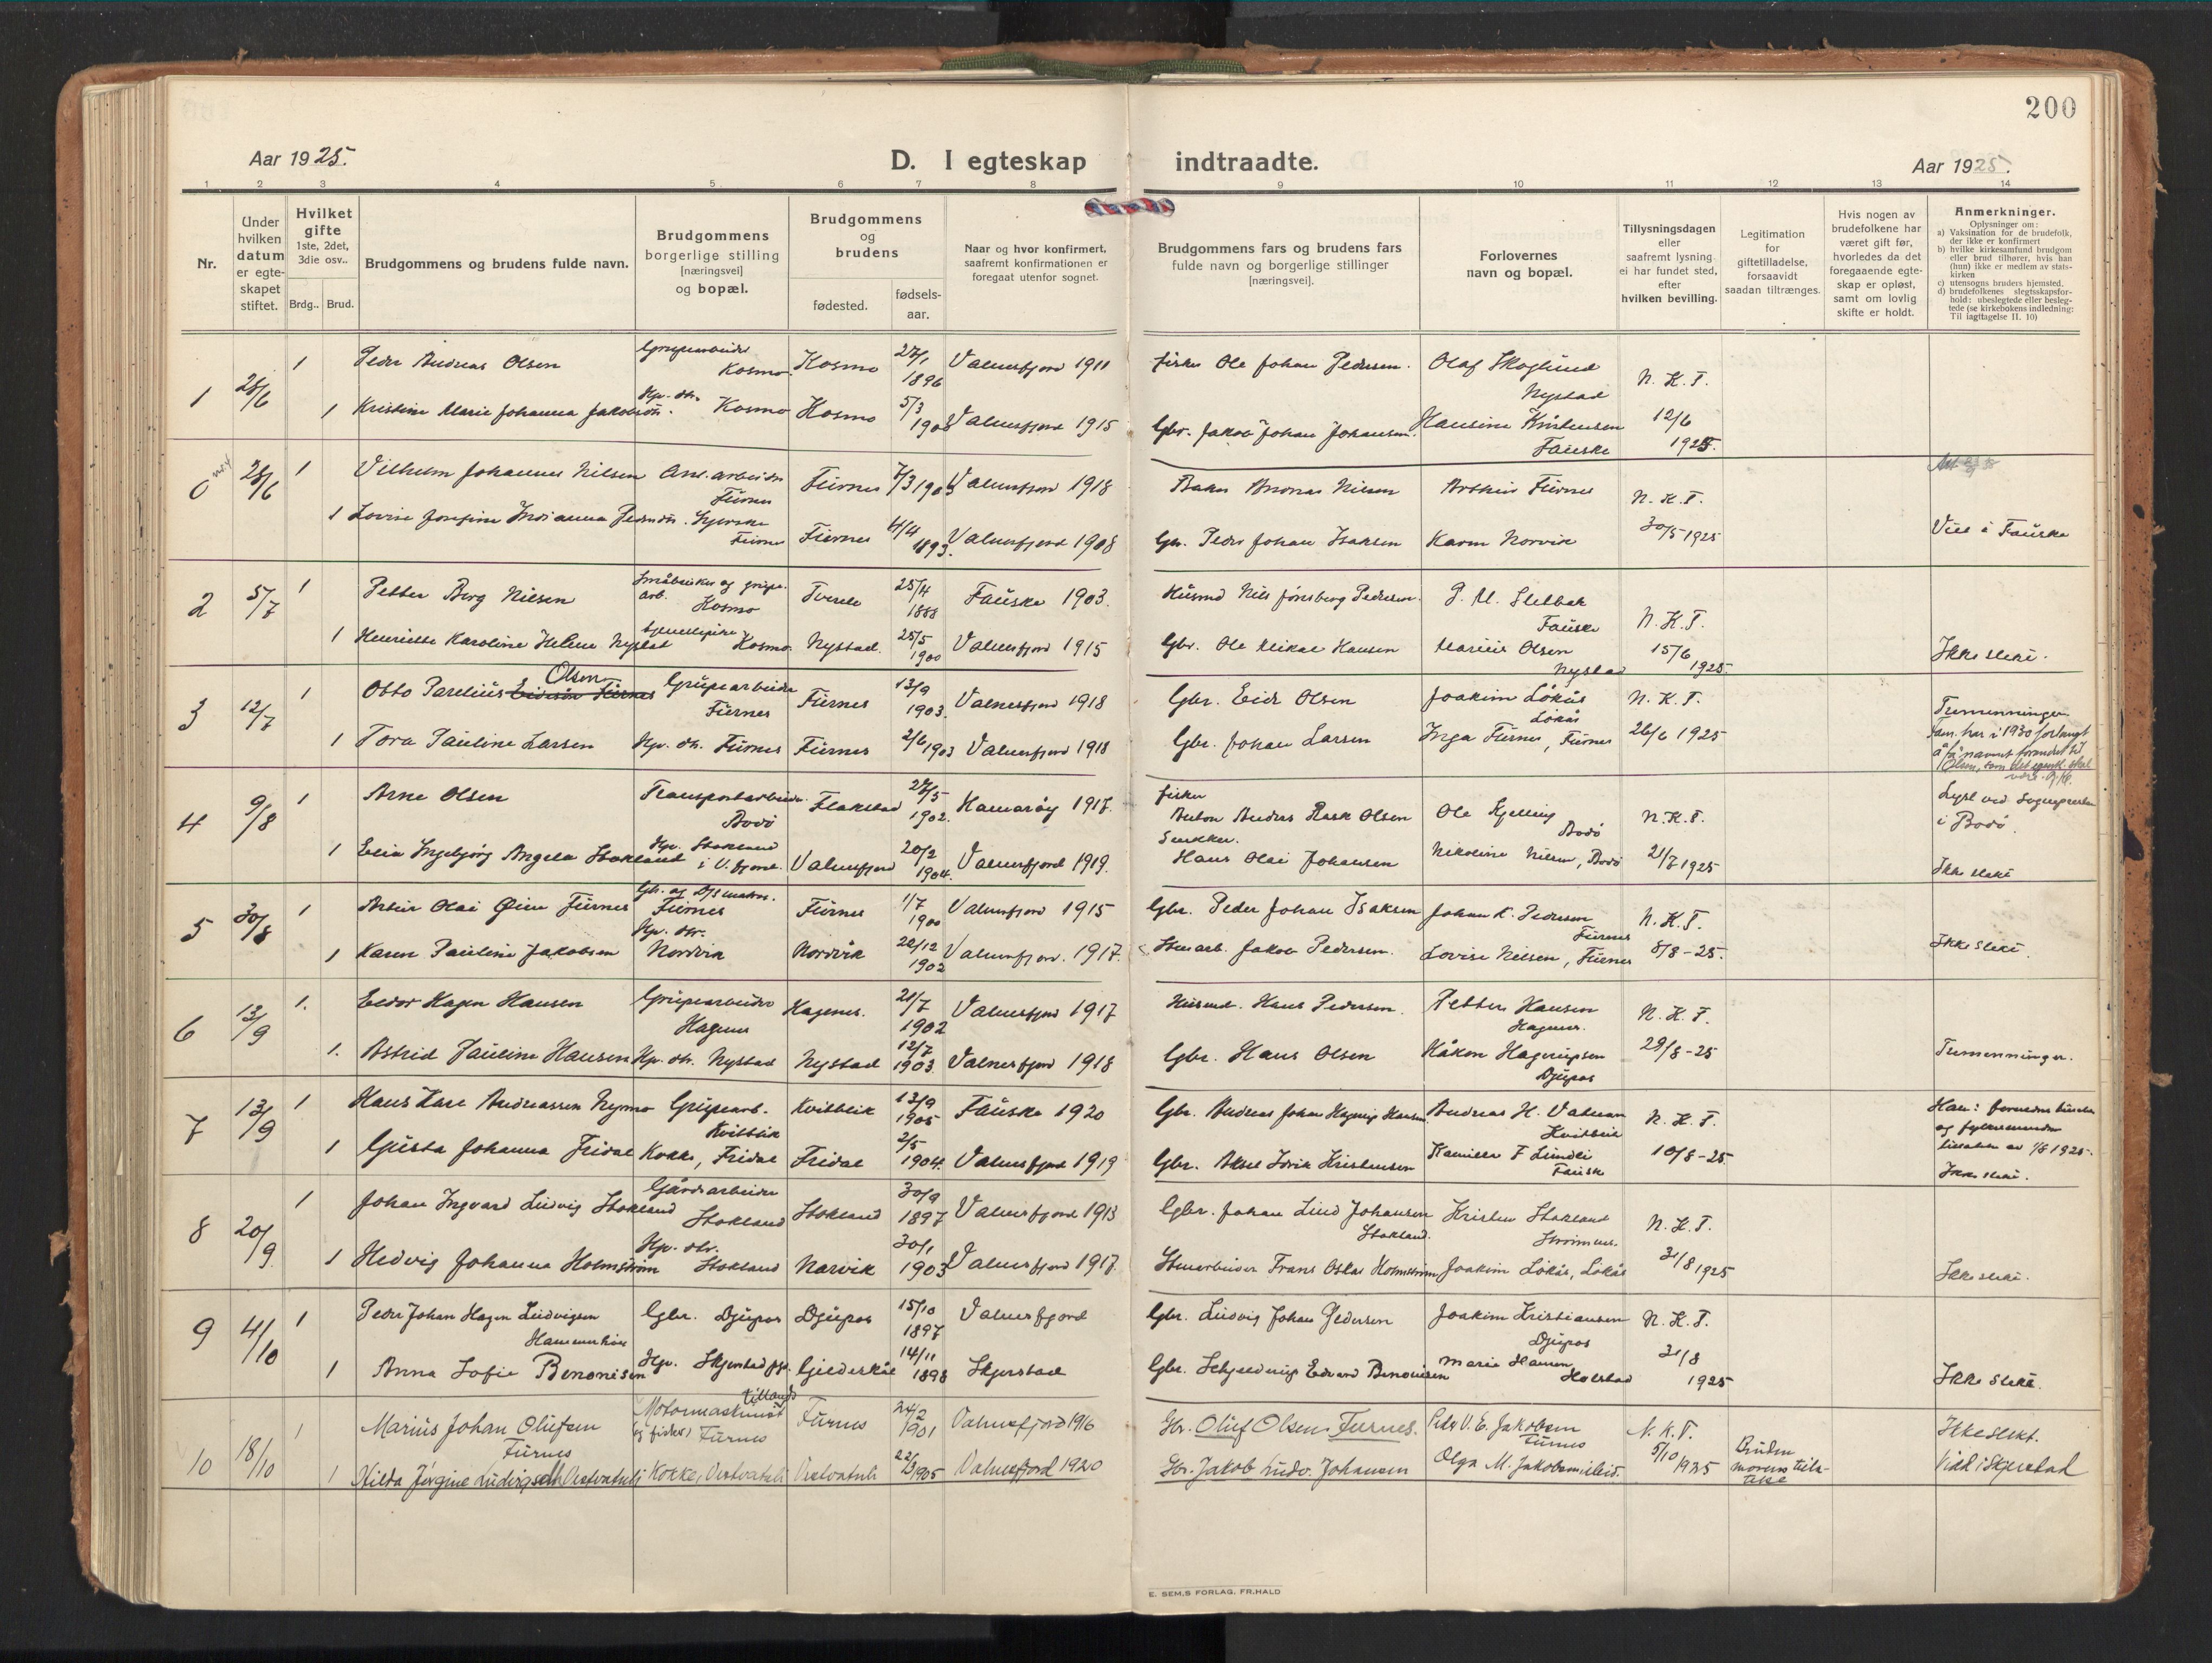 200
Aar 1925.
D. I egteskap indtraadte.
Aar 1925.
1 2 3 4 5 6 7 8 9 10 11 12 13 14
Nr.
Under hvilken datum er egteskapet stiftet.
Hvilket gifte 1ste, 2det, 3die osv..
Brdg.. Brud.
Brudgommens og brudens fulde navn.
Brudgommens borgerlige stilling [næringsvei] og bopæl.
Brudgommens og brudens
fødested.
fødsels-aar.
Naar og hvor konfirmert, saafremt konfirmationen er foregaat utenfor sognet.
Brudgommens fars og brudens fars fulde navn og borgerlige stillinger [næringsvei].
Forlovernes navn og bopæl.
Tillysningsdagen eller saafremt lysning ei har fundet sted, efter hvilken bevilling.
Legitimation for giftetilladelse, forsaavidt saadan tiltrænges.
Hvis nogen av brudefolkene har været gift før, hvorledes da det foregaaende egteskap er opløst, samt om lovlig skifte er holdt.
Anmerkninger.
Oplysninger om:
a) Vaksination for de brudefolk, der ikke er konfirmert
b) hvilke kirkesamfund brudgom eller brud tilhører, hvis han (hun) ikke er medlem av statskirken
c) utensogns bruders hjemsted.
d) brudefolkenes slegtsskapsforhold: ubeslegtede eller beslegtede (se kirkebokens indledning: Til iagttagelse II. 10)
1 28/6 1 Peder Andreas Olsen Grubearbeider Kosmo Kosmo 27/1 1896 Valnesfjord 1911 Fisker Ole Johan Pedersen. Olaf Skoglund Nystad N. K. T.
1 Kristine Marie Johanna Jakobsen. Hp. dtr. Kosmo Kosmo 5/3 Valnesfjord 1915 Gbr. Jakob Johan Johansen. Hansine Kristensen Fauske 12/6 1925.
0 28/6 1 Vilhelm Johannes Nilsen Anl. arbeider Furnes Furnes 7/3 Valnesfjord 1918 Nilsen Arthur Furnes N. K. T.
1 Lovise Josefine Pedersen. Syerske Furnes Furnes 4/4 1893. Valnesfjord 1908 Gbr. Peder Johan Isaksen Karen Norvik 30/5 1925 Viet i Fauske
2 5/7 1 Petter Berg Nilsen Småbruker og grube. arb. Kosmo Tverele 25/4 1888 Fauske 1903. Husmd Nils Jønsberg Pedersen. P. M. Sletbak Fauske N. K. T.
1 Henriette Karoline Helene Nystad Kosmo. Nystad. 25/5 1900 Valnesfjord 1915 Gbr. Ole Mikal Hansen Marius Olsen Nystad 15/6 1925. Ikke slekt.
3 12/7 1 Otto Parelius Olsen Grubearbeider Furnes Furnes 13/9 1903. Valnesfjord 1918 Gbr. Eidr Olsen Joakim Løkås Løkås N. K. T. Tremenninger
1 Tora Pauline Larsen Hp. dtr. Furnes Furnes 2/6 1903 Valnesfjord 1918 Gbr. Johan Larsen Inga Furnes, Furnes 26/6 1925 Fam. har i 1930 forlangt å få navnet forandret til Olsen, som det
4 9/8 1 Arne Olsen Transportarbeider Bodø Flakstad 27/5 1902. Hamarøy 1917. Fisker Anton Anders Rask Olsen Ole Kjelling Bodø N. K. T. Lyst ved Sognepresten i Bodø.
1 Ingebjørg Angela Stokland Hp. Stokland i V. fjord. Valnesfjord 20/2 1904. Valnesfjord 1919. Snekker. Hans Olai Johansen Nikoline Nilsen, Bodø 21/7 1925 Ikke slekt
5 30/8 1 Artur Olai Øien Furnes Furnes Furnes 1/7 1900 Valnesfjord 1915 Gbr. Peder Johan Isaksen Johan K. Pedersen Furnes N. K. T.
1 Karen Pauline Jakobsen Hp. dtr. Nordvik Nordvik 22/12 1902 Valnesfjord. 1917. Stenarb. Jakob Pedersen. Lovise Nilsen, Furnes 8/8-25. Ikke slekt.
6 13/9 1. Eidor Hagen Hansen Grubearbeider Hagenes Hagenes. 21/7 1902 Valnesfjord 1917 Husmd. Hans Pedersen. Petter Hansen Hagenes. N. K. T.
1. Astrid Pauline Hansen Hp. dtr. Nystad Nystad 12/7 1903. Valnesfjord 1918 Gbr. Hans Olsen Håkon Hagerupsen Djupos 29/8-25 Tremenninger.
7 13/9 1 Hans Kare Andreassen Nymo Grubearb. Kvitblik Kvitblik 13/9 1905 Fauske 1920 Gbr. Andreas Johan Hagerup Hansen Andreas H. Valnan Kvitblik N. K. T.
1 Gusta Johanna Fridal Kokke, Fridal Fridal 2/5 1904. Valnesfjord 1919 Gbr. Aksel Idrik Kristensen Kamilla F Lindli Fauske 10/8-25 Ikke slekt.
8 20/9 1 Johan Ingvard Ludvig Stokland Gårdsarbeider Stokland Stokland 30/9 1897 Valnesfjord 1913 Gbr. Johan Lind Johansen Stokland. Kristen Stokland N. K. T.
1 Hedvig Johanna Holmstrøm Hp. dtr. Stokland Narvik 30/1 1903 Valnesfjord 1917. Stenarbeider Frans Oskar Holmstrøm Joakim Løkås, Løkås 31/8 1925 Ikke slekt.
9 4/10 1 Peder Johan Hagen Ludvigsen Gbr. Djupos Djupos 15/10 1897 Valnesfjord Gbr. Ludvig Johan Pedersen Joakim Kristiansen Djupos N. K. T.
1 Anna Sofie Benonisen Hp. Skjerstad pgd. Gildeskål 14/11 1898 Skjerstad Gbr. Schjelderup Edvard Benonisen Maria Hansen Holstad 31/8 1925 Ikke slekt.
10 18/10 1 Marius Johan Olufsen Furnes Motormaskinist og fisker, Furnes Furnes 24/2 1901 Valnesfjord 1916 Gbr. Oluf Olsen Furnes. Peder V. E. Jakobsen Furnes N. K. T. Ikke slekt.
1 Hilda Jørgine Ludvigsen Vestvatnli Kokke, Vestvatnli Vestvatnli 22/3 1905 Valnesfjord 1920 Gbr. Jakob Ludv. Johansen Olga M. Jakobsen 5/10 1925 Bruden morens Viet i Skjerstad
E. SEM.S FORLAG. FR.HALD